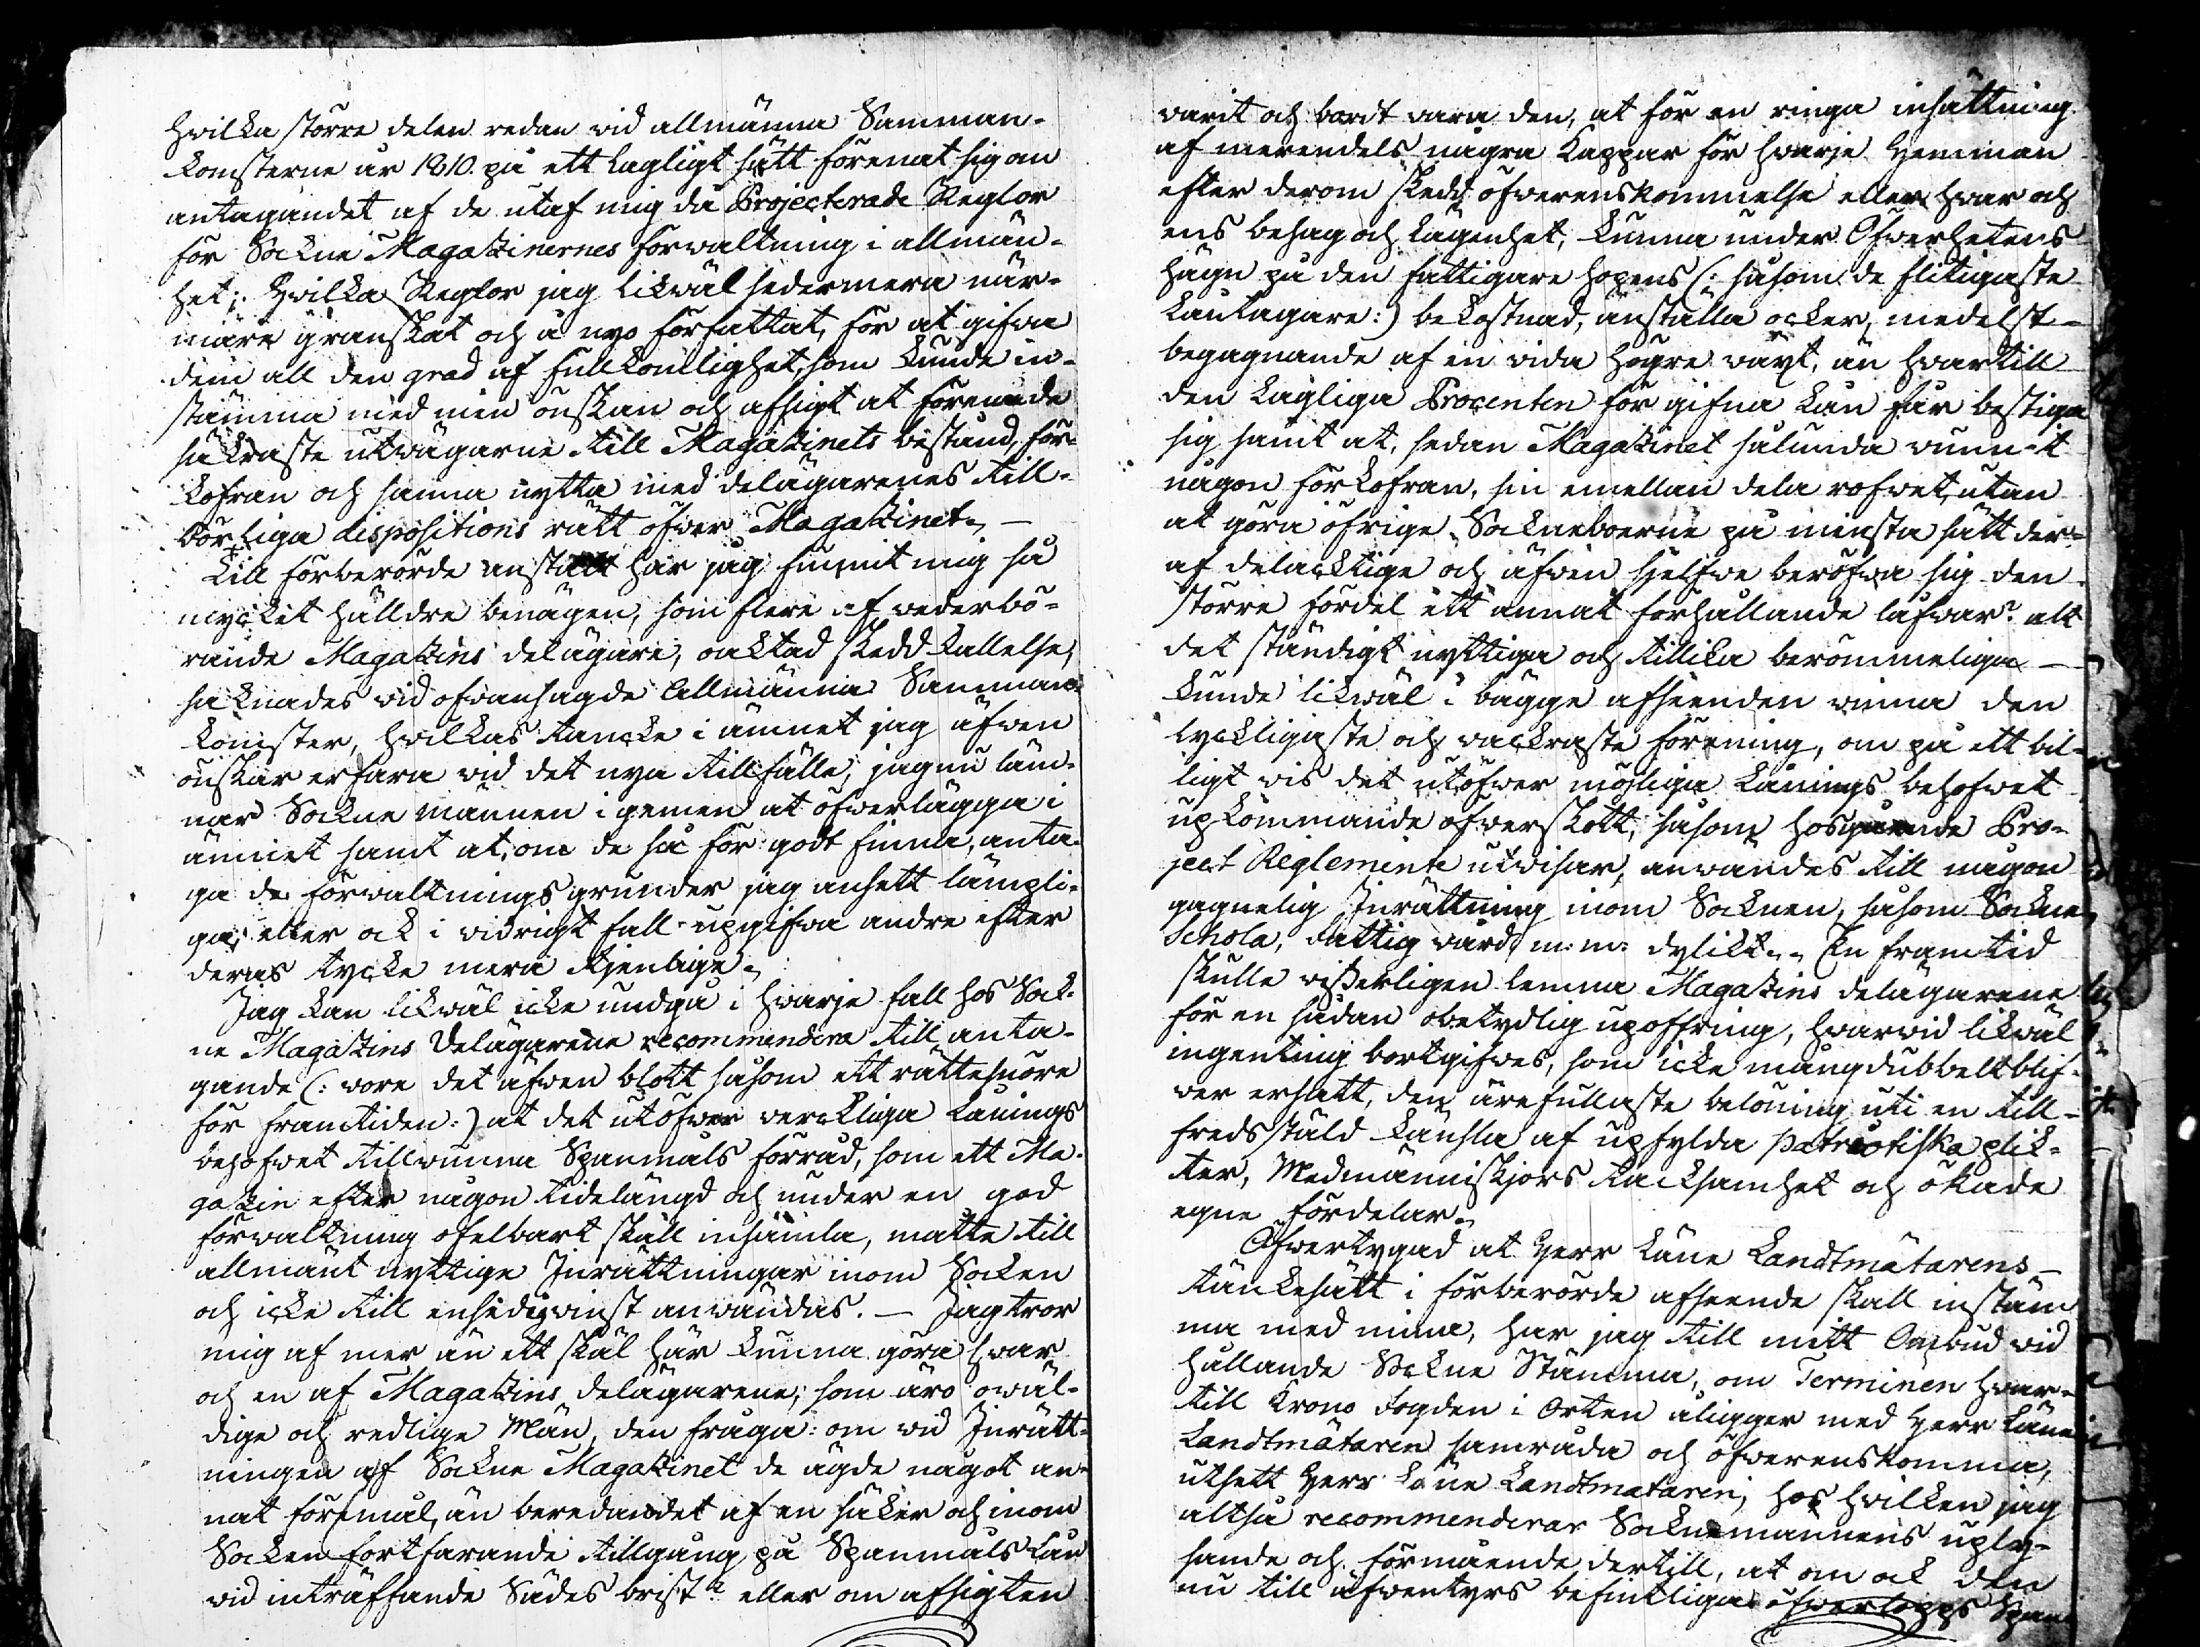 hvilka större delen redan vid allmänna Samman-
komsterne år 1810. på ett Lagligt sätt förenat sig om
antagandet af de utaf mig då Projecterade Reglor
för Sockne Magazinernes förvaltning i allmän-
het; Hvilka Reglor jag likväl sedermera när-
mare granskat och å nyo författat, för at gifva
dem all den grad af fullkomlighet, som kunde in-
stämma med min önskan och afsigt at förena de
säkraste utvägarne till Magazinets bestånd, för-
kofran och sanna nytta med delägarenes till-
börliga dispositions rätt öfver Magazinet. —
Till förberörde anstalt har jag funnit mig så
mycket hälldre benägen, som flere af vederbö-
rande Magazins delägare, oacktad skedd kallelse,
saknades vid ofvansagde allmänna Samman-
komster, hvilkas tancke i ämnet jag äfven
önskar erfara vid det nya tillfälle, jag nu läm-
nar Sockne männen i gemen at öfverlägga i
ämnet samt at, om de så för godt finna, anta-
ga de förvaltnings grunder jag ansett lämpli-
ga, eller ock i vidrigt fall upgifva andre efter
deras tycke mera tjenlige.
Jag kan likväl icke undgå i hvarje fall hos Sock-
ne Magazins Delägarene recommendera till anta-
gande (: vore det äfven blott såsom ett rättesnöre
för framtiden :) at det utöfver verckliga Lånings
behofvet tillvunna Spanmåls förråd, som ett Ma-
gazin efter någon tidelängd och under en god
förvaltning ofelbart skall insamla, måtte till
allmänt nyttige Inrättningar inom Socken
och icke till enskild vinst användas. — Jag tror
mig af mer än ett skäl här kunna göra hvar
och en af Magazins delägarene, som äro oväl-
dige och redlige Män, den fråga: om vid Inrätt-
ningen af Sockne Magazinet de ägde något an-
nat föremål, än beredandet af en säker och inom
Socken fortfarande tillgång på Spanmåls Lån
vid inträffande Sädes brist? eller om afsigten
varit och bordt vara den, at för en ringa insättning
af merendels några Kappar för hvarje Hemman
efter derom skedd öfverenskommelse eller hvar och
ens behag och lägenhet, kunna under Öfverhetens
hägn på den fattigare hopens (: såsom de flitigaste
Låntagare :) bekostnad, anställa ocker, medelst
begagnande af en vida högre växt, än hvartill
den Lagliga Procenten för gifna Lån får bestiga
sig samt at, sedan Magazinet sålunda vunnit
någon förkofran, sin emellan dela rofvet, utan
at göra öfrige Sockneboerne på minsta sätt der-
af delacktige och äfven sjelfve beröfva sig den
större fördel ett annat förhållande låfvar? alt
det ständigt nyttiga och tillika berömmeliga —
kunde likväl i bägge afseenden vinna den
lyckligaste och vackraste förening, om på ett bil-
ligt vis det utöfver möjliga Lånings behofvet
upkommande öfverskott, såsom hosgående Pro-
ject Reglemente utvisar, användes till någon
gagnelig Inrättning inom Socknen, såsom Sockne
Schola, fattig vård m: m: dylikt. En framtid
skulle visserligen lemna Magazins delägarene
för en sådan obetydlig upoffring, hvarvid likväl
ingenting bortgifves, som icke mångdubbelt blif-
ver ersatt, den ärefullaste belöning uti en till-
fredsstäld känsla af upfylda patriotiska plik-
ter, Medmänniskjors tacksamhet och ökade
egne fördelar.
Öfvertygad at Herr Läne Landtmätarens
tänkesätt i förberörde afseende skall instäm-
ma med mina, har jag till mitt Ombud vid
hållande Sockne Stämma, om Terminen hvar-
till Krono Fogden i Orten åligger med Herr Läne
Landtmätaren samråda och öfverenskomma,
utsett Herr Läne Landtmätaren, hos hvilken jag
altså recommenderar Socknemännens uply-
sande och förmående dertill, at om ock den
nu till äfventyrs befintliga öfverlopps Span